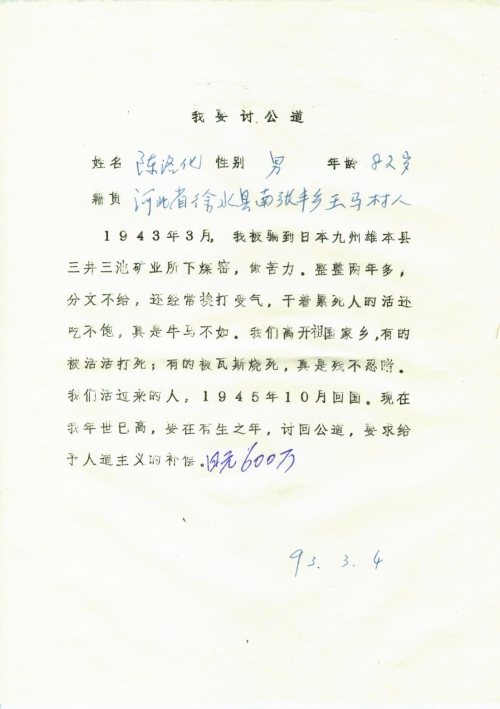 我要讨公道
姓名 陈洛化 性别 男 年龄 82岁
籍贯 河北省徐水县南张丰乡王马村人
1943年3月，我被骗到日本九州雄本县
三井三池矿业所下煤窑，做苦力。整整两年多，
分文不给，还经常挨打受气，干着累死人的活还
吃不饱，真是牛马不如。我们离开祖国家乡，有的
被活活打死；有的被瓦斯烧死，真是残不忍睹。
我们活过来的人，1945年10月回国。现在
我年世已高，要在有生之年，讨回公道，要求给
予人道主义的补偿。日元600万
93.3.4